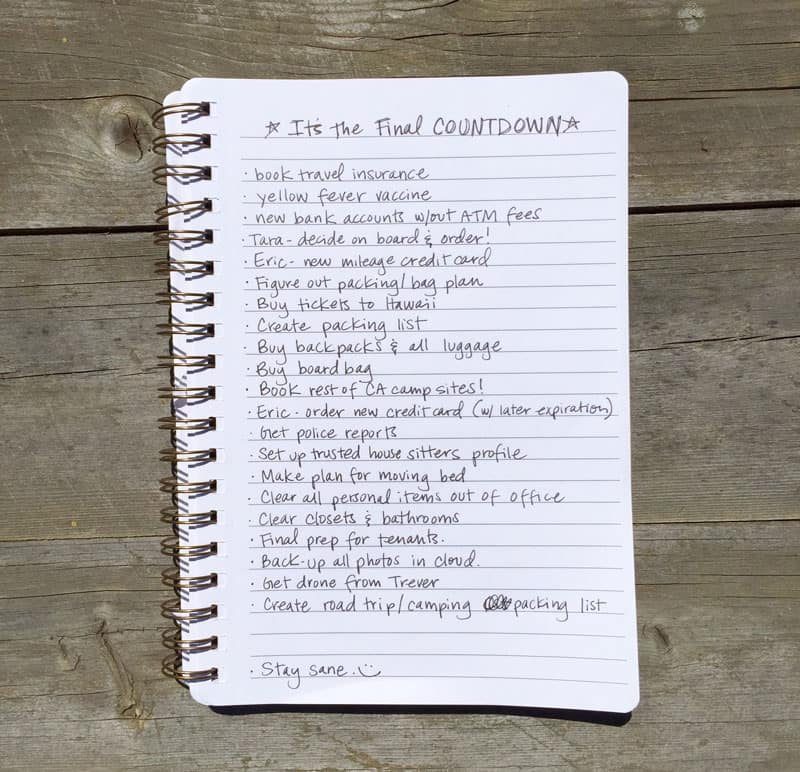 ☆ It's the Final COUNTDOWN ☆
· book travel insurance
· yellow fever vaccine
· new bank accounts w/out ATM fees
· Tara - decide on board & order!
· Eric - new mileage credit card
· Figure out packing/bag plan
· Buy tickets to Hawaii
· Create packing list
· Buy backpacks & all luggage
· Buy board bag
· Book rest of CA camp sites!
· Eric - order new credit card (w/ later expiration)
· Get police reports
· Set up trusted house sitters profile
· Make plan for moving bed
· Clear all personal items out of office
· Clear closets & bathrooms
· Final prep for tenants.
· Back-up all photos in cloud.
· Get drone from Trever
· Create road trip/camping packing list
· Stay sane. :)